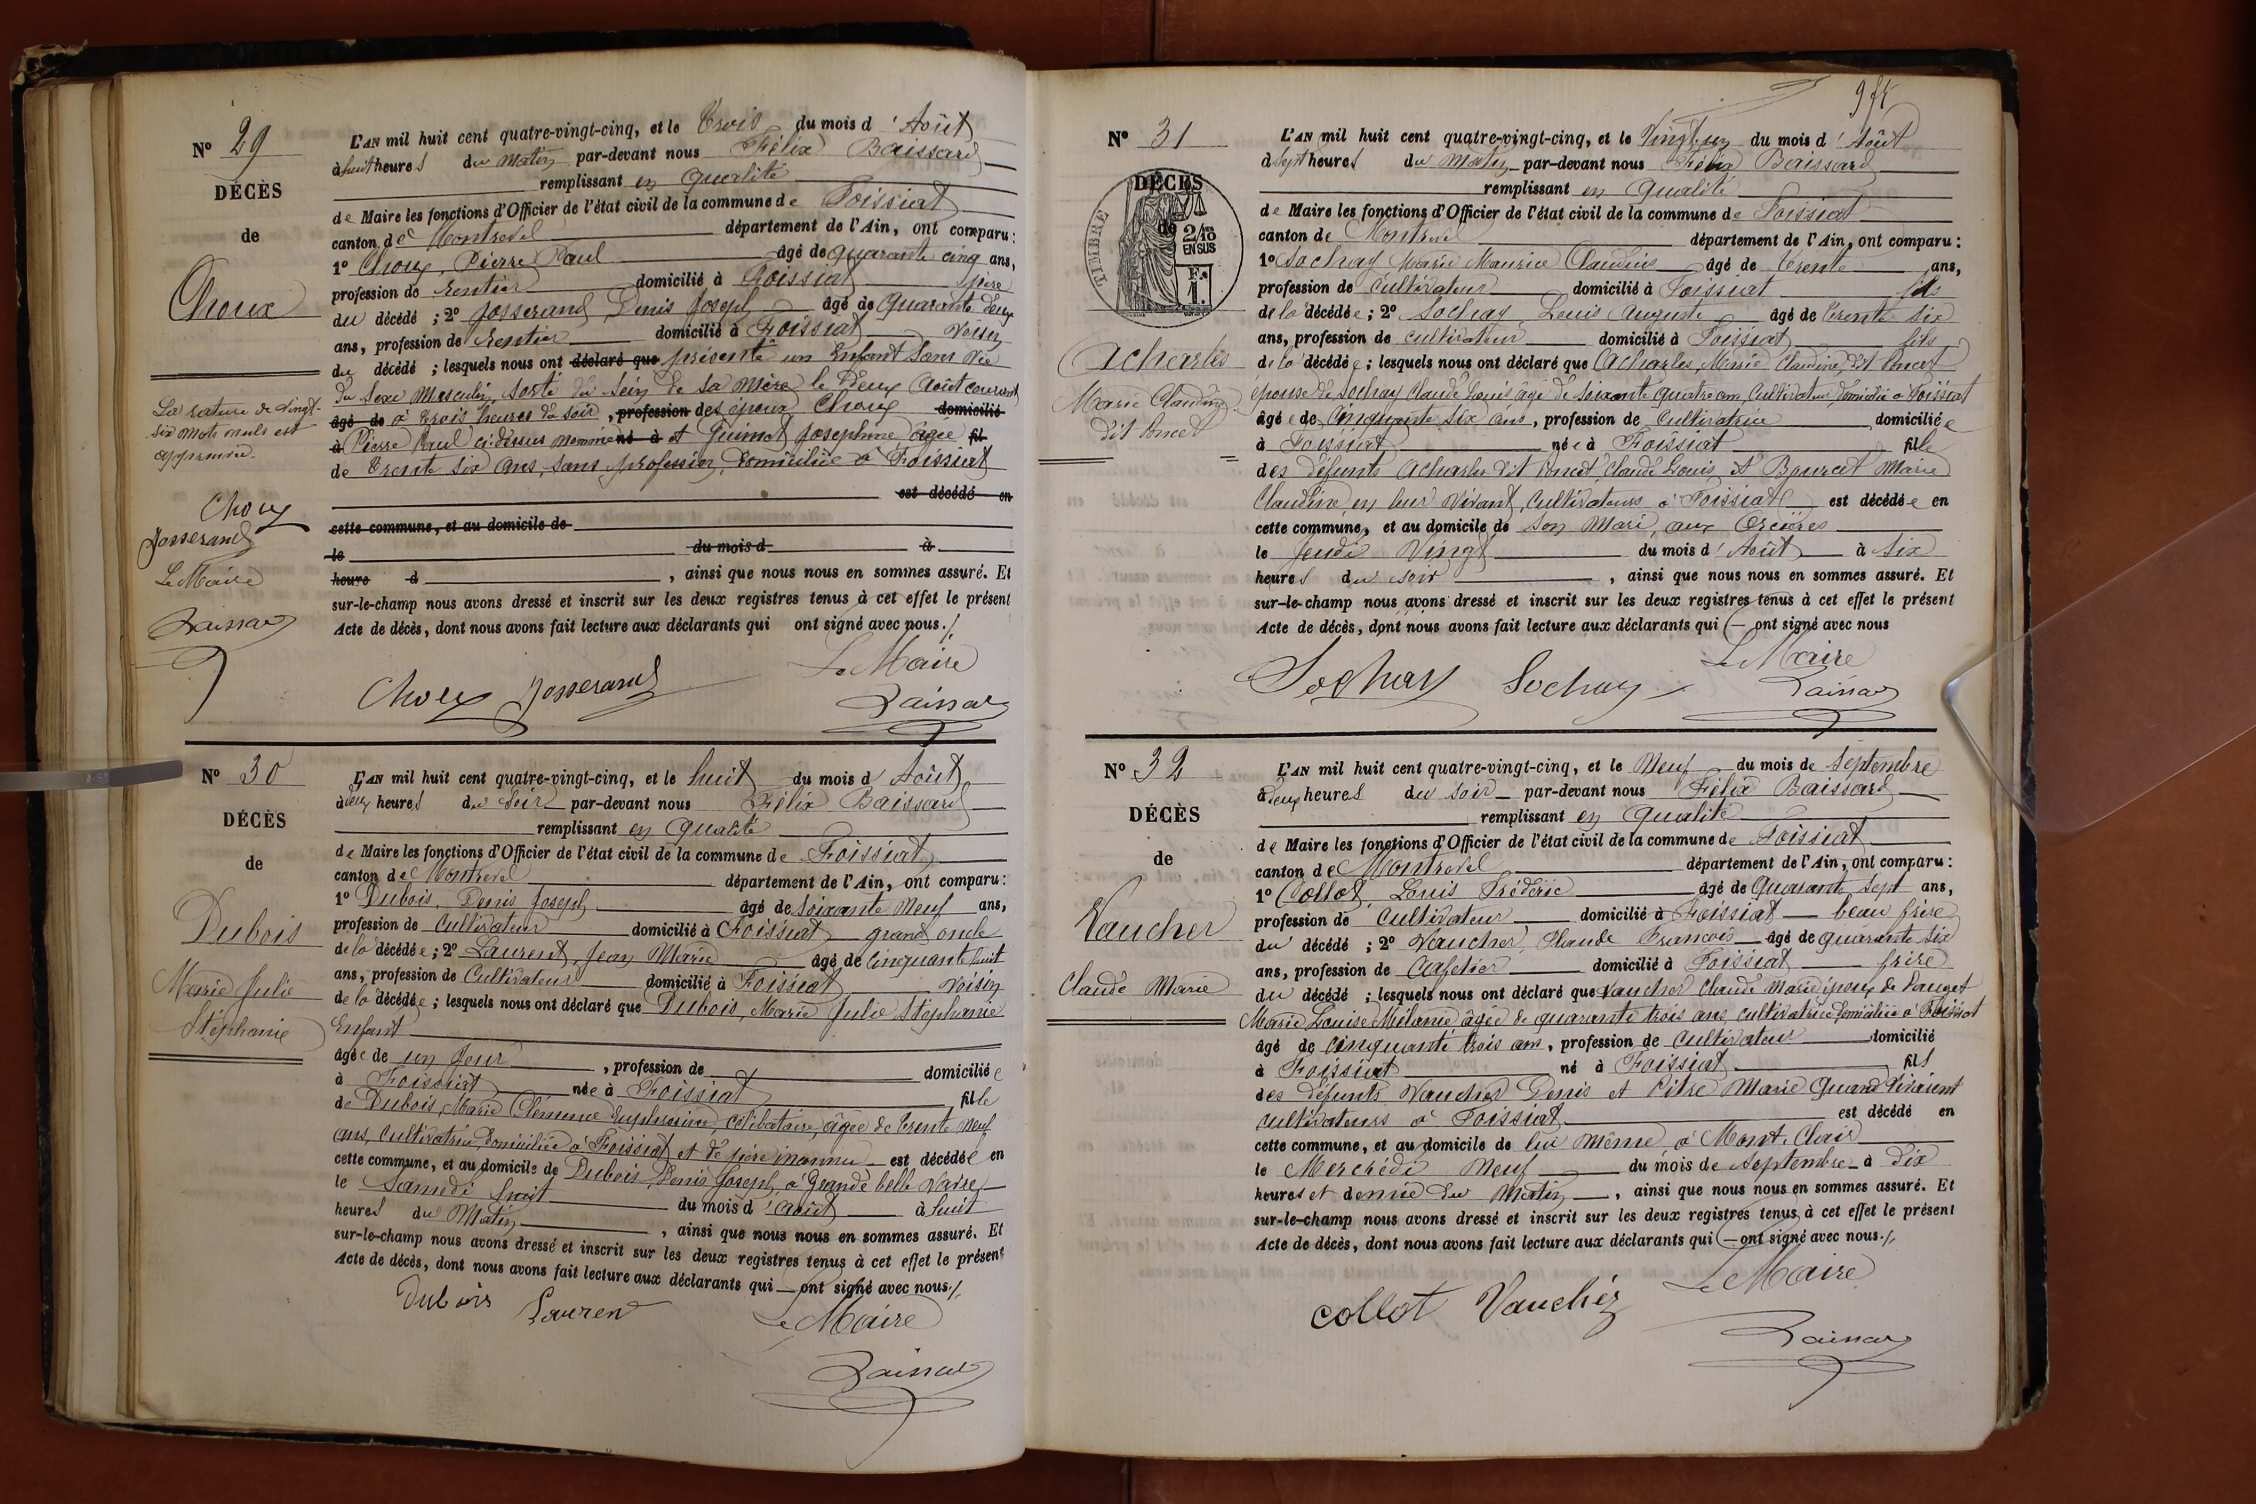 Nº 29
DÉCÈS
de
Choux
La rature de vingt-
six mots nuls est
approuvée.
Choux
Josserand
Le Maire
Baissard
L'AN mil huit cent quatre-vingt-cinq, et le trois du mois d'Août
à huit heures du matin par-devant nous Félix Baissard
remplissant en qualité
de Maire les fonctions d'Officier de l'état civil de la commune de Foissiat
canton de Montrevel département de l'Ain, ont comparu :
1º Choux, Pierre Paul âgé de quarante cinq ans,
profession de rentier domicilié à Foissiat père
du décédé ; 2º Josserand Denis Joseph âgé de quarante deux
ans, profession de rentier domicilié à Foissiat voisin
du décédé ; lesquels nous ont déclaré que présenté un Enfant sans vie
du sexe masculin, sorti du sein de sa mère le deux Août courant
âgé de à trois heures du soir, profession des époux Choux domicilié
à Pierre Paul ci-dessus nommé né à et Guimet Josephine âgée fil
de trente six ans, sans profession, domiciliée à Foissiat
est décédé en
cette commune, et au domicile de
le du mois d à
heure d , ainsi que nous nous en sommes assuré. Et
sur-le-champ nous avons dressé et inscrit sur les deux registres tenus à cet effet le présent
Acte de décès, dont nous avons fait lecture aux déclarants qui ont signé avec nous./.
Le Maire
Choux Josserand
Baissard
Nº 30
DÉCÈS
de
Dubois
Marie Julie
Stéphanie
L'AN mil huit cent quatre-vingt-cinq, et le huit du mois d'Août
à deux heures du soir par-devant nous Félix Baissard
remplissant en qualité
de Maire les fonctions d'Officier de l'état civil de la commune de Foissiat
canton de Montrevel département de l'Ain, ont comparu :
1º Dubois, Denis Joseph âgé de soixante neuf ans,
profession de cultivateur domicilié à Foissiat grand oncle
de la décédée ; 2º Laurent, Jean Marie âgé de cinquante huit
ans, profession de cultivateur domicilié à Foissiat voisin
de la décédée ; lesquels nous ont déclaré que Dubois, Marie Julie Stéphanie
Enfant
âgée de un jour , profession de domiciliée
à Foissiat née à Foissiat fille
de Dubois, Marie Clémence célibataire, âgée de trente neuf
ans, cultivatrice domiciliée à Foissiat et de père inconnu est décédée en
cette commune, et au domicile de Dubois, Denis Joseph, à Grande belle Vavre
le Samedi huit du mois d'Août à huit
heures du matin , ainsi que nous nous en sommes assuré. Et
sur-le-champ nous avons dressé et inscrit sur les deux registres tenus à cet effet le présent
Acte de décès, dont nous avons fait lecture aux déclarants qui — ont signé avec nous./.
Dubois Laurent
Le Maire
Baissard
Nº 31
DÉCÈS
de
TIMBRE
2/10
EN SUS
Acharles
Marie Claudine
dit Poncet
L'AN mil huit cent quatre-vingt-cinq, et le vingt un du mois d'Août
à sept heures du matin par-devant nous Félix Baissard
remplissant en qualité
de Maire les fonctions d'Officier de l'état civil de la commune de Foissiat
canton de Montrevel département de l'Ain, ont comparu :
1º Sochay Marie Maurice Claudius âgé de trente ans,
profession de cultivateur domicilié à Foissiat fils
de la décédée ; 2º Sochay, Louis Auguste âgé de trente six
ans, profession de cultivateur domicilié à Foissiat fils
de la décédée ; lesquels nous ont déclaré que Acharles, Marie Claudine, dit Poncet
épouse de Sochay Claude Louis âgé de soixante quatre ans, cultivateur, domicilié à Foissiat
âgée de cinquante six ans, profession de cultivatrice domiciliée
à Foissiat née à Foissiat fille
des défunts Acharles dit Poncet, Claude Louis et Bourcet Marie
Claudine, en leur vivant, cultivateurs à Foissiat est décédée en
cette commune, et au domicile de son mari, aux Orcières
le Jeudi vingt du mois d'Août à six
heures du soir , ainsi que nous nous en sommes assuré. Et
sur-le-champ nous avons dressé et inscrit sur les deux registres tenus à cet effet le présent
Acte de décès, dont nous avons fait lecture aux déclarants qui — ont signé avec nous
Le Maire
Sochay Sochay
Baissard
Nº 32
DÉCÈS
de
Vaucher
Claude Marie
L'AN mil huit cent quatre-vingt-cinq, et le neuf du mois de Septembre
à deux heures du soir par-devant nous Félix Baissard
remplissant en qualité
de Maire les fonctions d'Officier de l'état civil de la commune de Foissiat
canton de Montrevel département de l'Ain, ont comparu :
1º Collot, Louis Frédéric âgé de quarante sept ans,
profession de cultivateur domicilié à Foissiat beau frère
du décédé ; 2º Vaucher, Claude François âgé de quarante six
ans, profession de cafetier domicilié à Foissiat frère
du décédé ; lesquels nous ont déclaré que Vaucher Claude Marie époux de
Marie Louise Mélanie, âgée de quarante trois ans, cultivatrice, domiciliée à Foissiat
âgé de cinquante trois ans, profession de cultivateur domicilié
à Foissiat né à Foissiat fils
des défunts Vaucher Denis et Pitre Marie quand vivaient
cultivateurs à Foissiat est décédé en
cette commune, et au domicile de lui même, à Mont-Clair
le Mercredi neuf du mois de Septembre à dix
heures et demie du matin , ainsi que nous nous en sommes assuré. Et
sur-le-champ nous avons dressé et inscrit sur les deux registres tenus à cet effet le présent
Acte de décès, dont nous avons fait lecture aux déclarants qui — ont signé avec nous./.
Le Maire
Collot Vaucher
Baissard